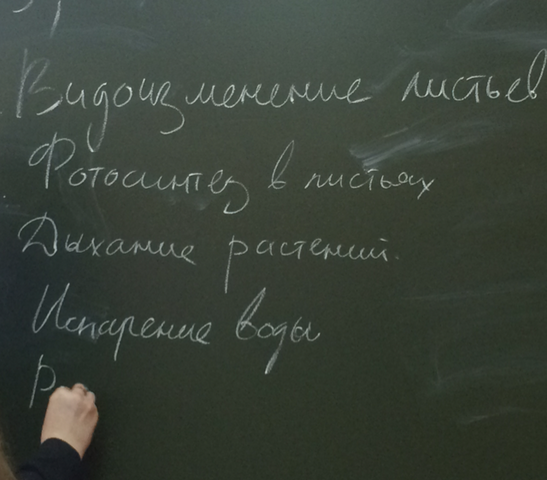 Видоизменение листьев
Фотосинтез в листьях
Дыхание растений.
Испарение воды
Р